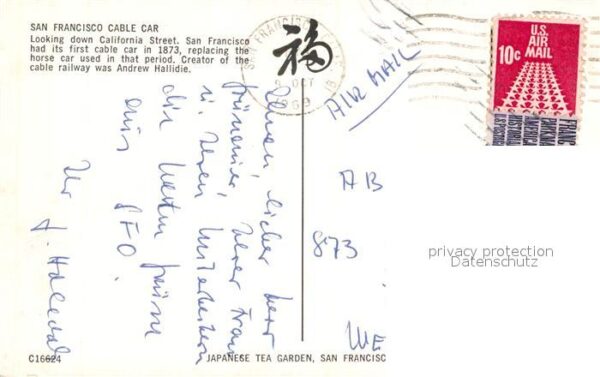 SAN FRANCISCO CABLE CAR
Looking down California Street. San Francisco
had its first cable car in 1873, replacing the
horse car used in that period. Creator of the
cable railway was Andrew Hallidie.
福
SAN FRANCISCO
OCT
1969
AIR MAIL
U.S.
AIR
MAIL
10c
Ihnen, lieber Herr
Ihrer Frau
u. Ihren Mitarbeitern
die besten Grüsse
aus SFO.
Ihr
AB
873
privacy protection
Datenschutz
C16624
JAPANESE TEA GARDEN, SAN FRANCISC